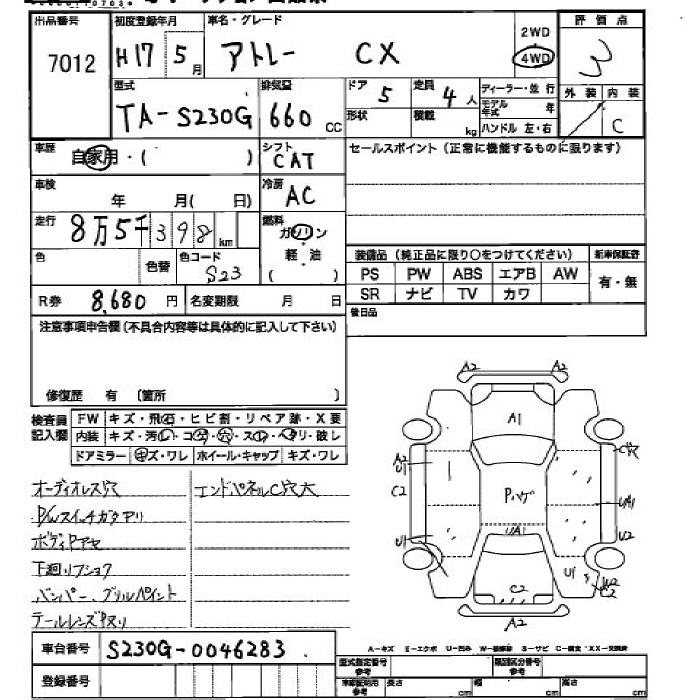 出品番号 初度登録年月 車名・グレード 2WD 評価点
7012 H17 5月 アトレー CX 4WD 3
型式 排気量 ドア 定員 ディーラー・並行 外装 内装
TA-S230G 660cc 5 4人 モデル年式 年 C
形状 積載 kg ハンドル 左・右
車歴 自家用・( ) シフト CAT セールスポイント(正常に機能するものに限ります)
車検 年 月( 日) 冷房 AC
走行 8万5千398km 燃料 ガソリン
軽油
( )
色 色替 色コード S23 装備品(純正品に限り○をつけてください) 新車保証書
PS PW ABS エアB AW 有・無
SR ナビ TV カワ
R券 8,680円 名変期限 月 日 後日品
注意事項申告欄(不具合内容等は具体的に記入して下さい)
修復歴 有 (箇所 )
検査員記入欄 FW キズ・飛石・ヒビ割・リペア跡・X要
内装 キズ・汚レ・コゲ・穴・スレ・ヘタリ・破レ
ドアミラー キズ・ワレ ホイール・キャップ キズ・ワレ
オーディオレス穴 エンドパネルC穴大
P/Wスイッチガタアリ
ボディPアセ
下廻リフショク
バンパー、グリルペイント
テールレンズPヌリ
A2 A2
A1
A2 U1 C穴
C2 Pハゲ U1A1
UA1 U2
U1 U1 W2
C2 C2
A2
A-キズ E-エクボ U-凹み W-補修跡 S-サビ C-腐食 XX-交換済
車台番号 S230G-0046283
登録番号
型式指定番号 参考 類別区分番号 参考
長さ cm 幅 cm 高さ cm